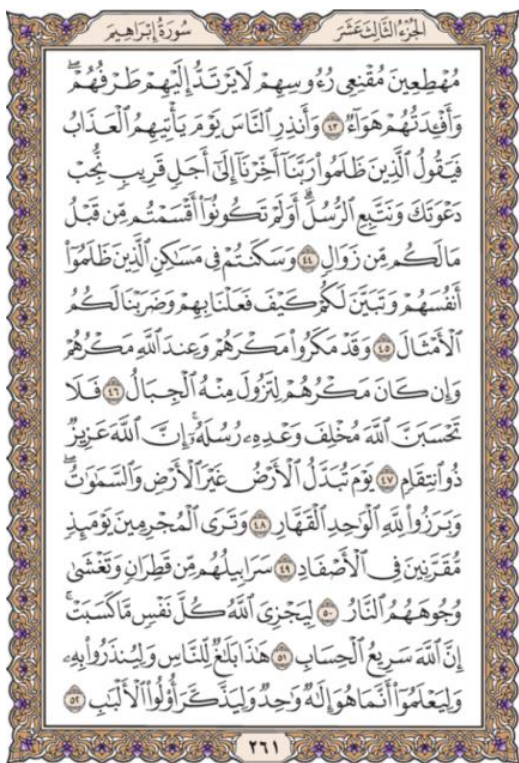 الجزء الثالث عشر سورة إبراهيم
مُهْطِعِينَ مُقْنِعِى رُءُوسِهِمْ لَا يَرْتَدُّ إِلَيْهِمْ طَرْفُهُمْ ۖ
وَأَفْـِٔدَتُهُمْ هَوَآءٌ ٤٣ وَأَنذِرِ ٱلنَّاسَ يَوْمَ يَأْتِيهِمُ ٱلْعَذَابُ
فَيَقُولُ ٱلَّذِينَ ظَلَمُوا۟ رَبَّنَآ أَخِّرْنَآ إِلَىٰٓ أَجَلٍ قَرِيبٍ نُّجِبْ
دَعْوَتَكَ وَنَتَّبِعِ ٱلرُّسُلَ ۗ أَوَلَمْ تَكُونُوٓا۟ أَقْسَمْتُم مِّن قَبْلُ
مَا لَكُم مِّن زَوَالٍ ٤٤ وَسَكَنتُمْ فِى مَسَـٰكِنِ ٱلَّذِينَ ظَلَمُوٓا۟
أَنفُسَهُمْ وَتَبَيَّنَ لَكُمْ كَيْفَ فَعَلْنَا بِهِمْ وَضَرَبْنَا لَكُمُ
ٱلْأَمْثَالَ ٤٥ وَقَدْ مَكَرُوا۟ مَكْرَهُمْ وَعِندَ ٱللَّهِ مَكْرُهُمْ
وَإِن كَانَ مَكْرُهُمْ لِتَزُولَ مِنْهُ ٱلْجِبَالُ ٤٦ فَلَا
تَحْسَبَنَّ ٱللَّهَ مُخْلِفَ وَعْدِهِۦ رُسُلَهُۥٓ ۗ إِنَّ ٱللَّهَ عَزِيزٌ
ذُو ٱنتِقَامٍ ٤٧ يَوْمَ تُبَدَّلُ ٱلْأَرْضُ غَيْرَ ٱلْأَرْضِ وَٱلسَّمَـٰوَٰتُ ۖ
وَبَرَزُوا۟ لِلَّهِ ٱلْوَٰحِدِ ٱلْقَهَّارِ ٤٨ وَتَرَى ٱلْمُجْرِمِينَ يَوْمَئِذٍ
مُّقَرَّنِينَ فِى ٱلْأَصْفَادِ ٤٩ سَرَابِيلُهُم مِّن قَطِرَانٍ وَتَغْشَىٰ
وُجُوهَهُمُ ٱلنَّارُ ٥٠ لِيَجْزِىَ ٱللَّهُ كُلَّ نَفْسٍ مَّا كَسَبَتْ ۚ
إِنَّ ٱللَّهَ سَرِيعُ ٱلْحِسَابِ ٥١ هَـٰذَا بَلَـٰغٌ لِّلنَّاسِ وَلِيُنذَرُوا۟ بِهِۦ
وَلِيَعْلَمُوٓا۟ أَنَّمَا هُوَ إِلَـٰهٌ وَٰحِدٌ وَلِيَذَّكَّرَ أُو۟لُوا۟ ٱلْأَلْبَـٰبِ ٥٢
٢٦١